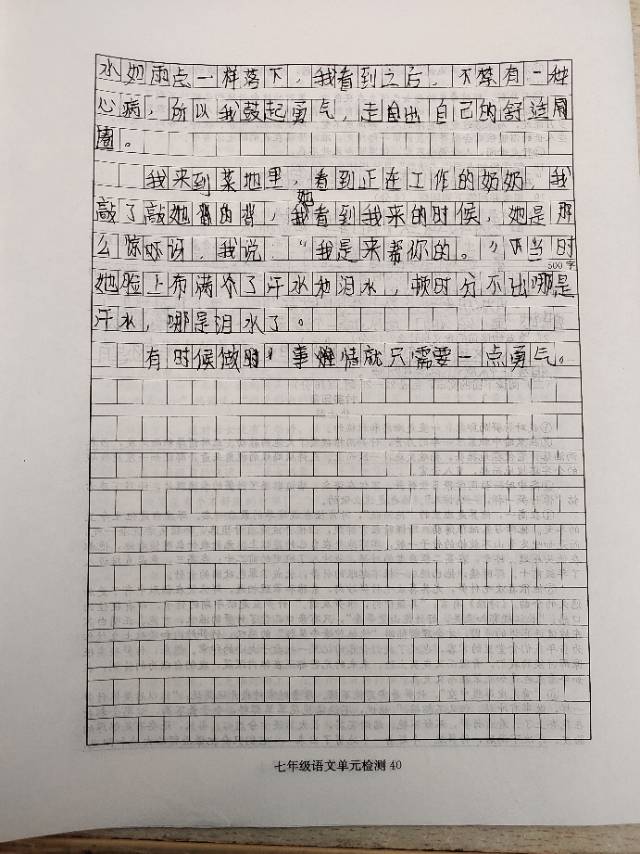 水如雨点一样落下，我看到之后，不禁有一种
心病，所以我鼓起勇气，走出自己的舒适周
圈。
我来到菜地里，看到正在工作的奶奶，我
敲了敲她的背，她看到我来的时候，她是那
么惊讶，我说：“我是来帮你的。”当时
500字
她脸上布满了汗水和泪水，顿时分不出哪是
汗水，哪是泪水了。
有时候做事情就只需要一点勇气。
七年级语文单元检测 40